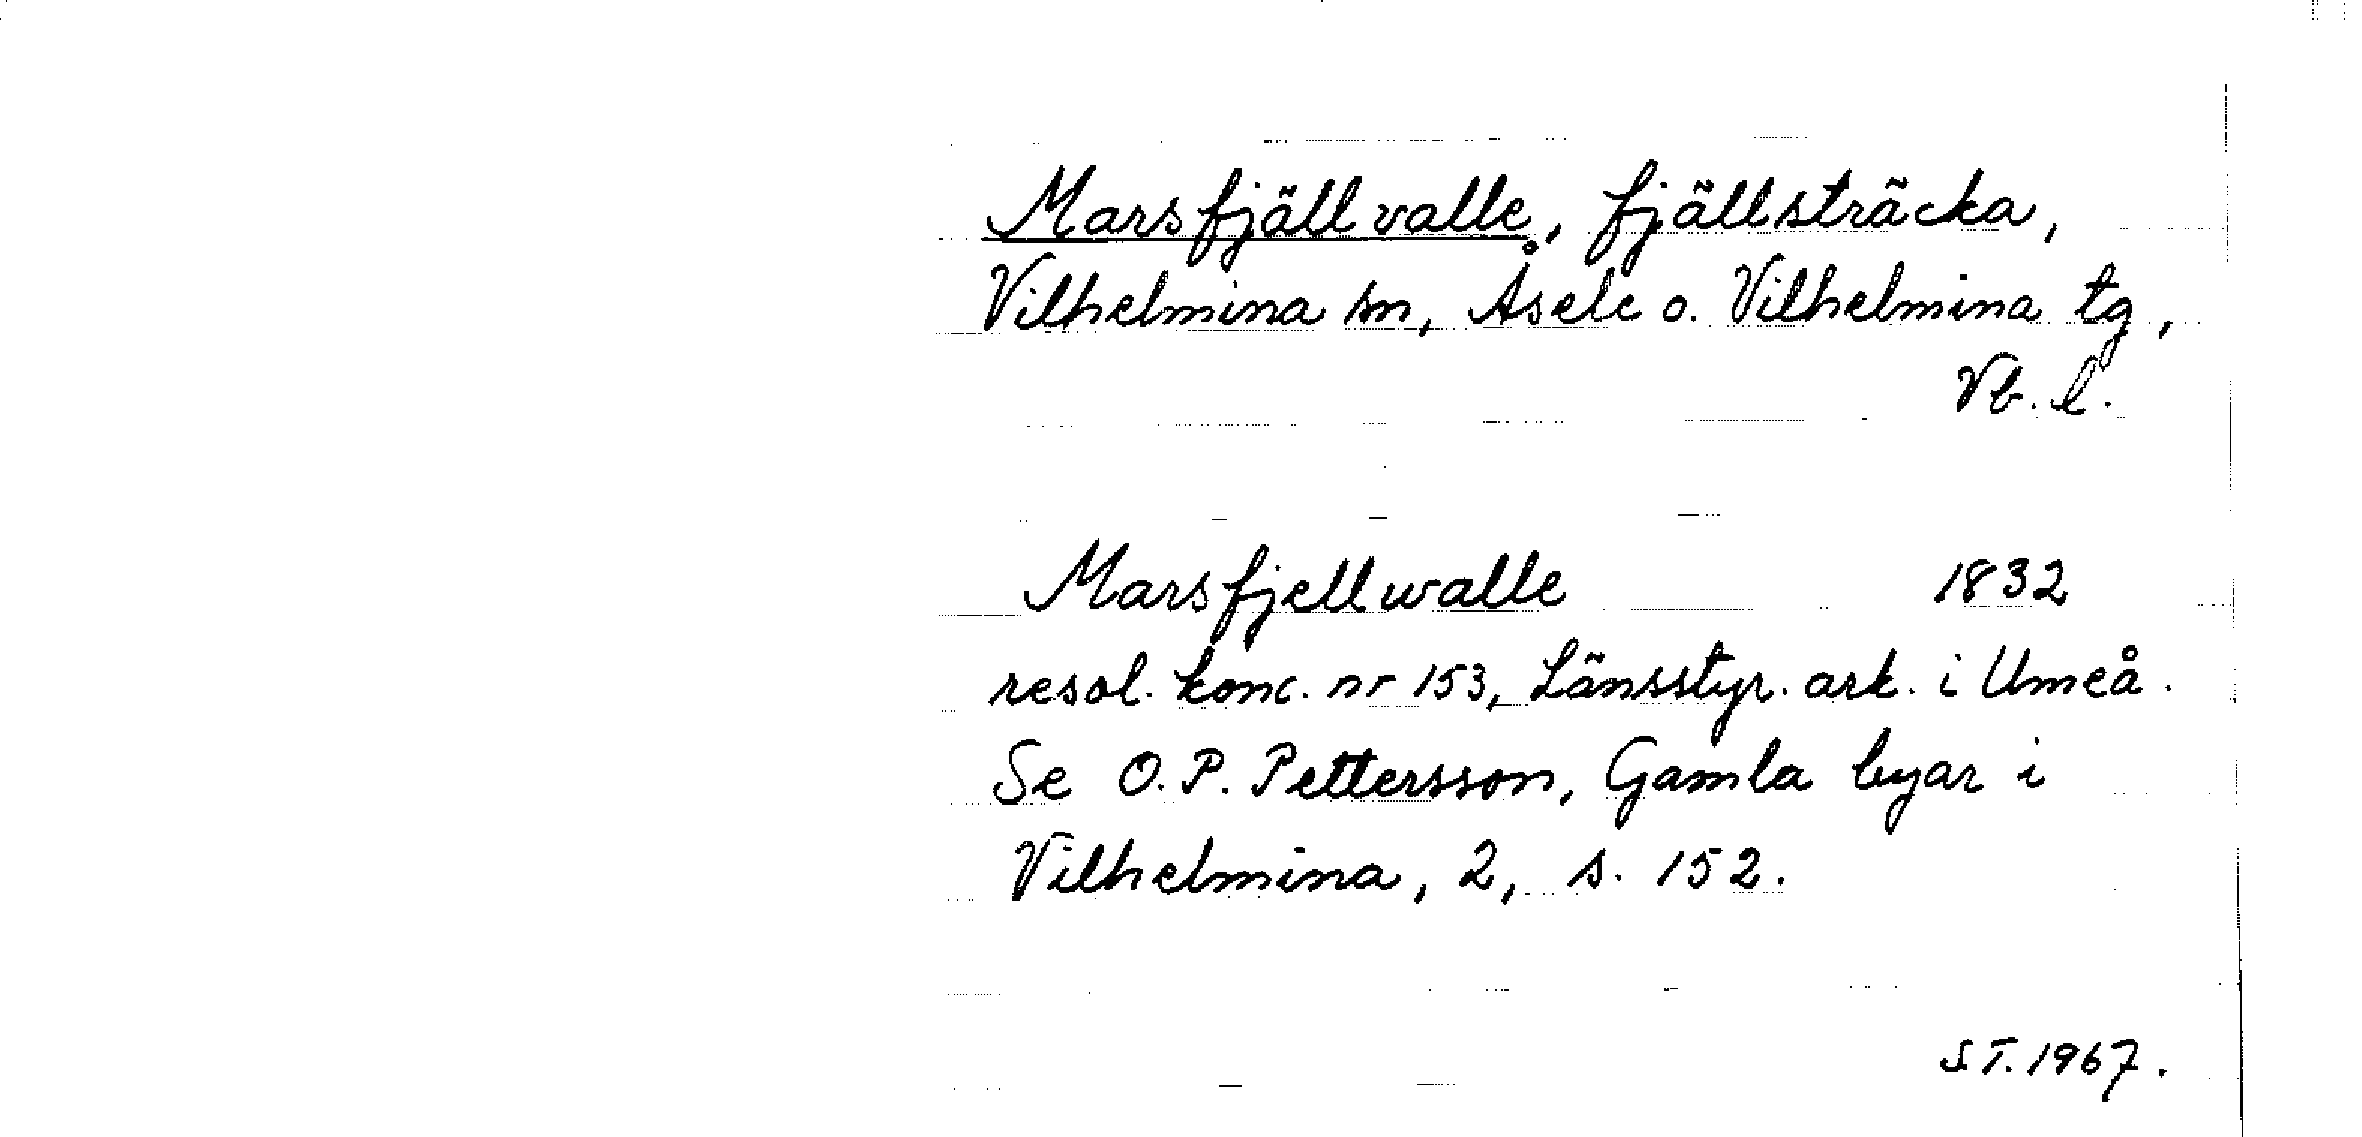 Marsfjällvalle, fjällsträcka,
Vilhelmina sn, Åsele o. Vilhelmina tg,
Vb. l.
Marsfjellwalle 1832
resol. konc. nr 153, Länsstyr. ark. i Umeå.
Se O. P. Pettersson, Gamla byar i
Vilhelmina, 2, s. 152.
S.T. 1967.